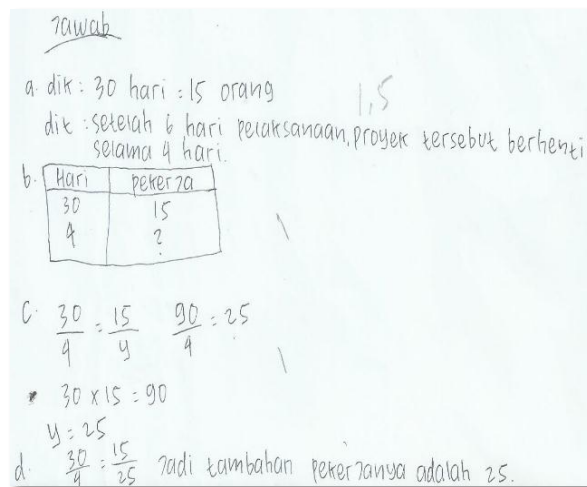 Jawab
a. dik : 30 hari = 15 orang
1,5
dit : setelah 6 hari pelaksanaan, proyek tersebut berhenti
selama 4 hari.
b. Hari pekerja
30 15
4 ?
c. 30/4 = 15/y 90/4 = 25
30 x 15 = 90
y = 25
d. 30/4 = 15/25 Jadi tambahan pekerjanya adalah 25.